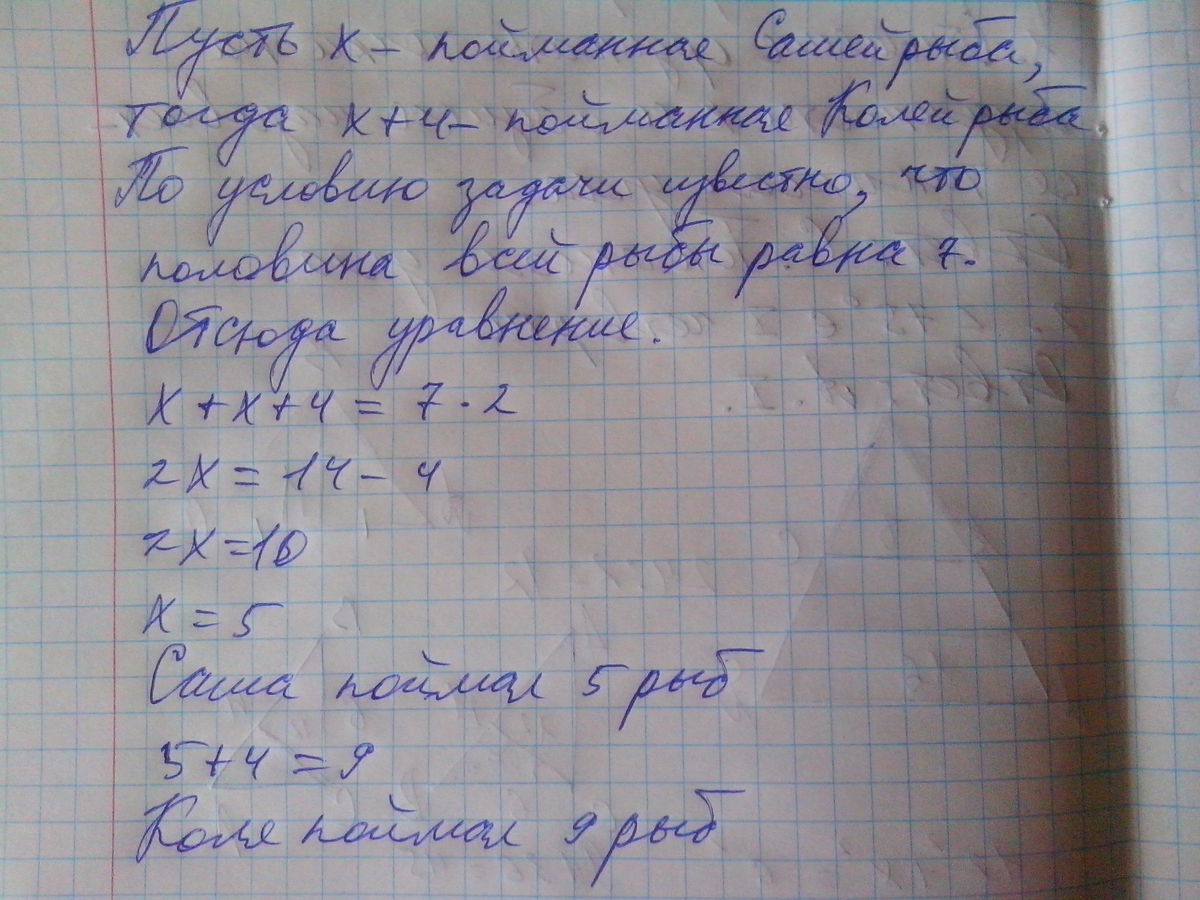 Пусть x – пойманная Сашей рыба,
тогда x+4– пойманная Колей рыба.
По условию задачи известно, что
половина всей рыбы равна 7.
Отсюда уравнение.
x + x + 4 = 7 · 2
2x = 14 – 4
2x = 10
x = 5
Саша поймал 5 рыб
5+4 = 9
Коля поймал 9 рыб